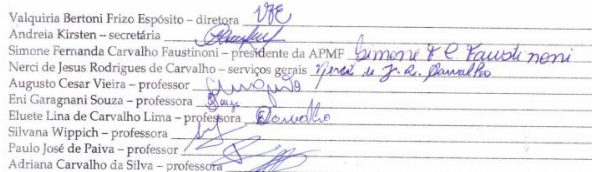 Valquiria Bertoni Frizo Espósito – diretora VBE
Andreia Kirsten – secretária
Simone Fernanda Carvalho Faustinoni – presidente da APMF Simone F C Faustinoni
Nerci de Jesus Rodrigues de Carvalho – serviços gerais Nerci de J. R. Carvalho
Augusto Cesar Vieira – professor
Eni Garagnani Souza – professora
Eluete Lina de Carvalho Lima – professora
Silvana Wippich – professora
Paulo José de Paiva – professor
Adriana Carvalho da Silva – professora